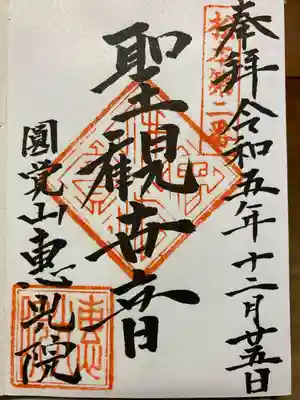 第二番
奉拝 令和五年十二月廿五日
聖観世音
圓覚山 惠光院